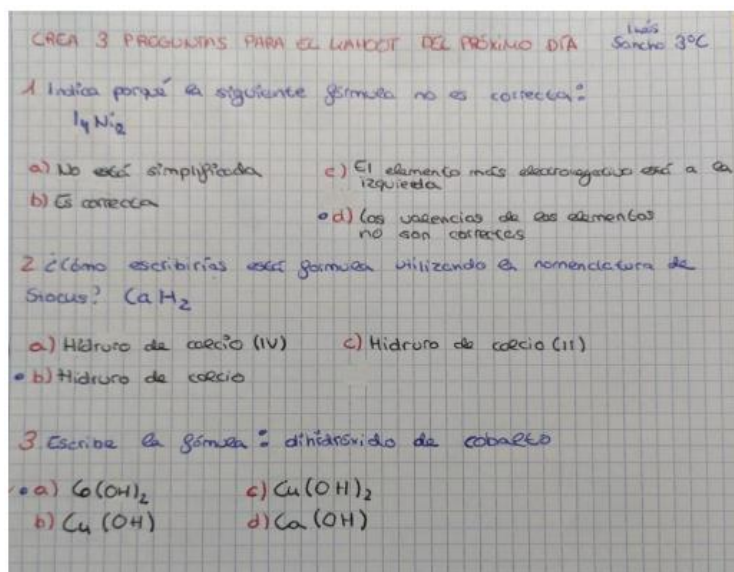 CREA 3 PREGUNTAS PARA EL KAHOOT DEL PRÓXIMO DÍA
Inés
Sancho 3ºC
1 Indica porqué la siguiente fórmula no es correcta:
I₄Ni₂
a) No está simplificada
b) Es correcta
c) El elemento más electronegativo está a la
izquierda
d) Las valencias de los elementos
no son correctas
2 ¿Cómo escribirías está formula utilizando la nomenclatura de
Stocus? CaH₂
a) Hidruro de calcio (IV)
c) Hidruro de calcio (II)
b) Hidruro de calcio
3 Escribe la fórmula: dihidróxido de cobalto
a) Co(OH)₂
c) Cu(OH)₂
b) Cu (OH)
d) Ca (OH)